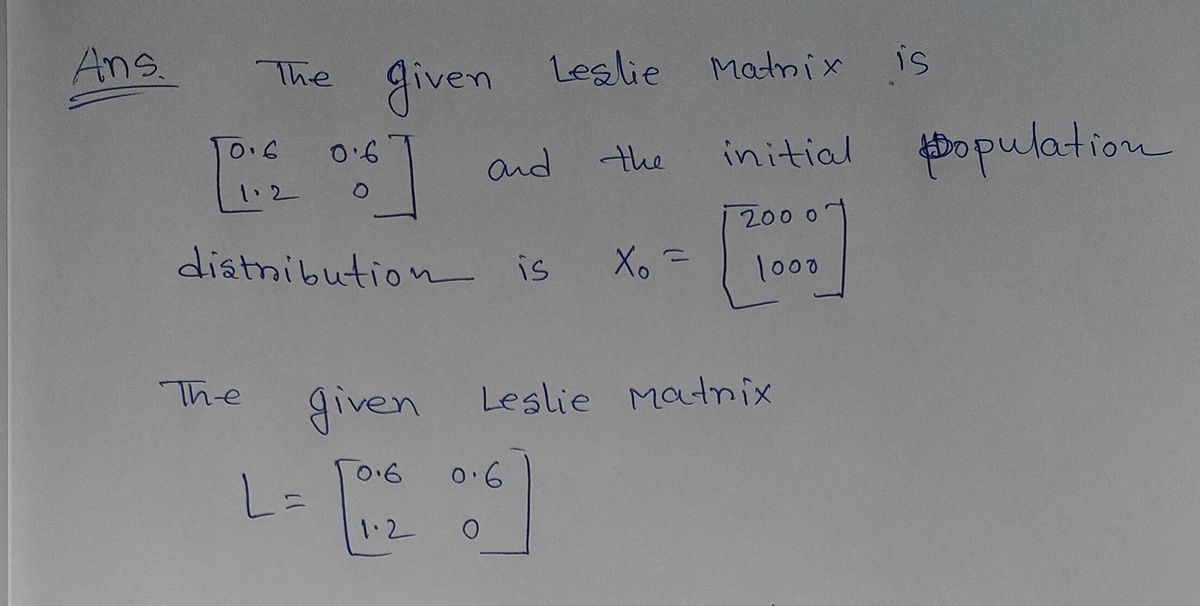 Ans. The given Leslie Matrix is
[0.6 0.6
1.2 0] and the initial population
distribution is X₀ = [2000
1000]
The given Leslie Matrix
L = [0.6 0.6
1.2 0]